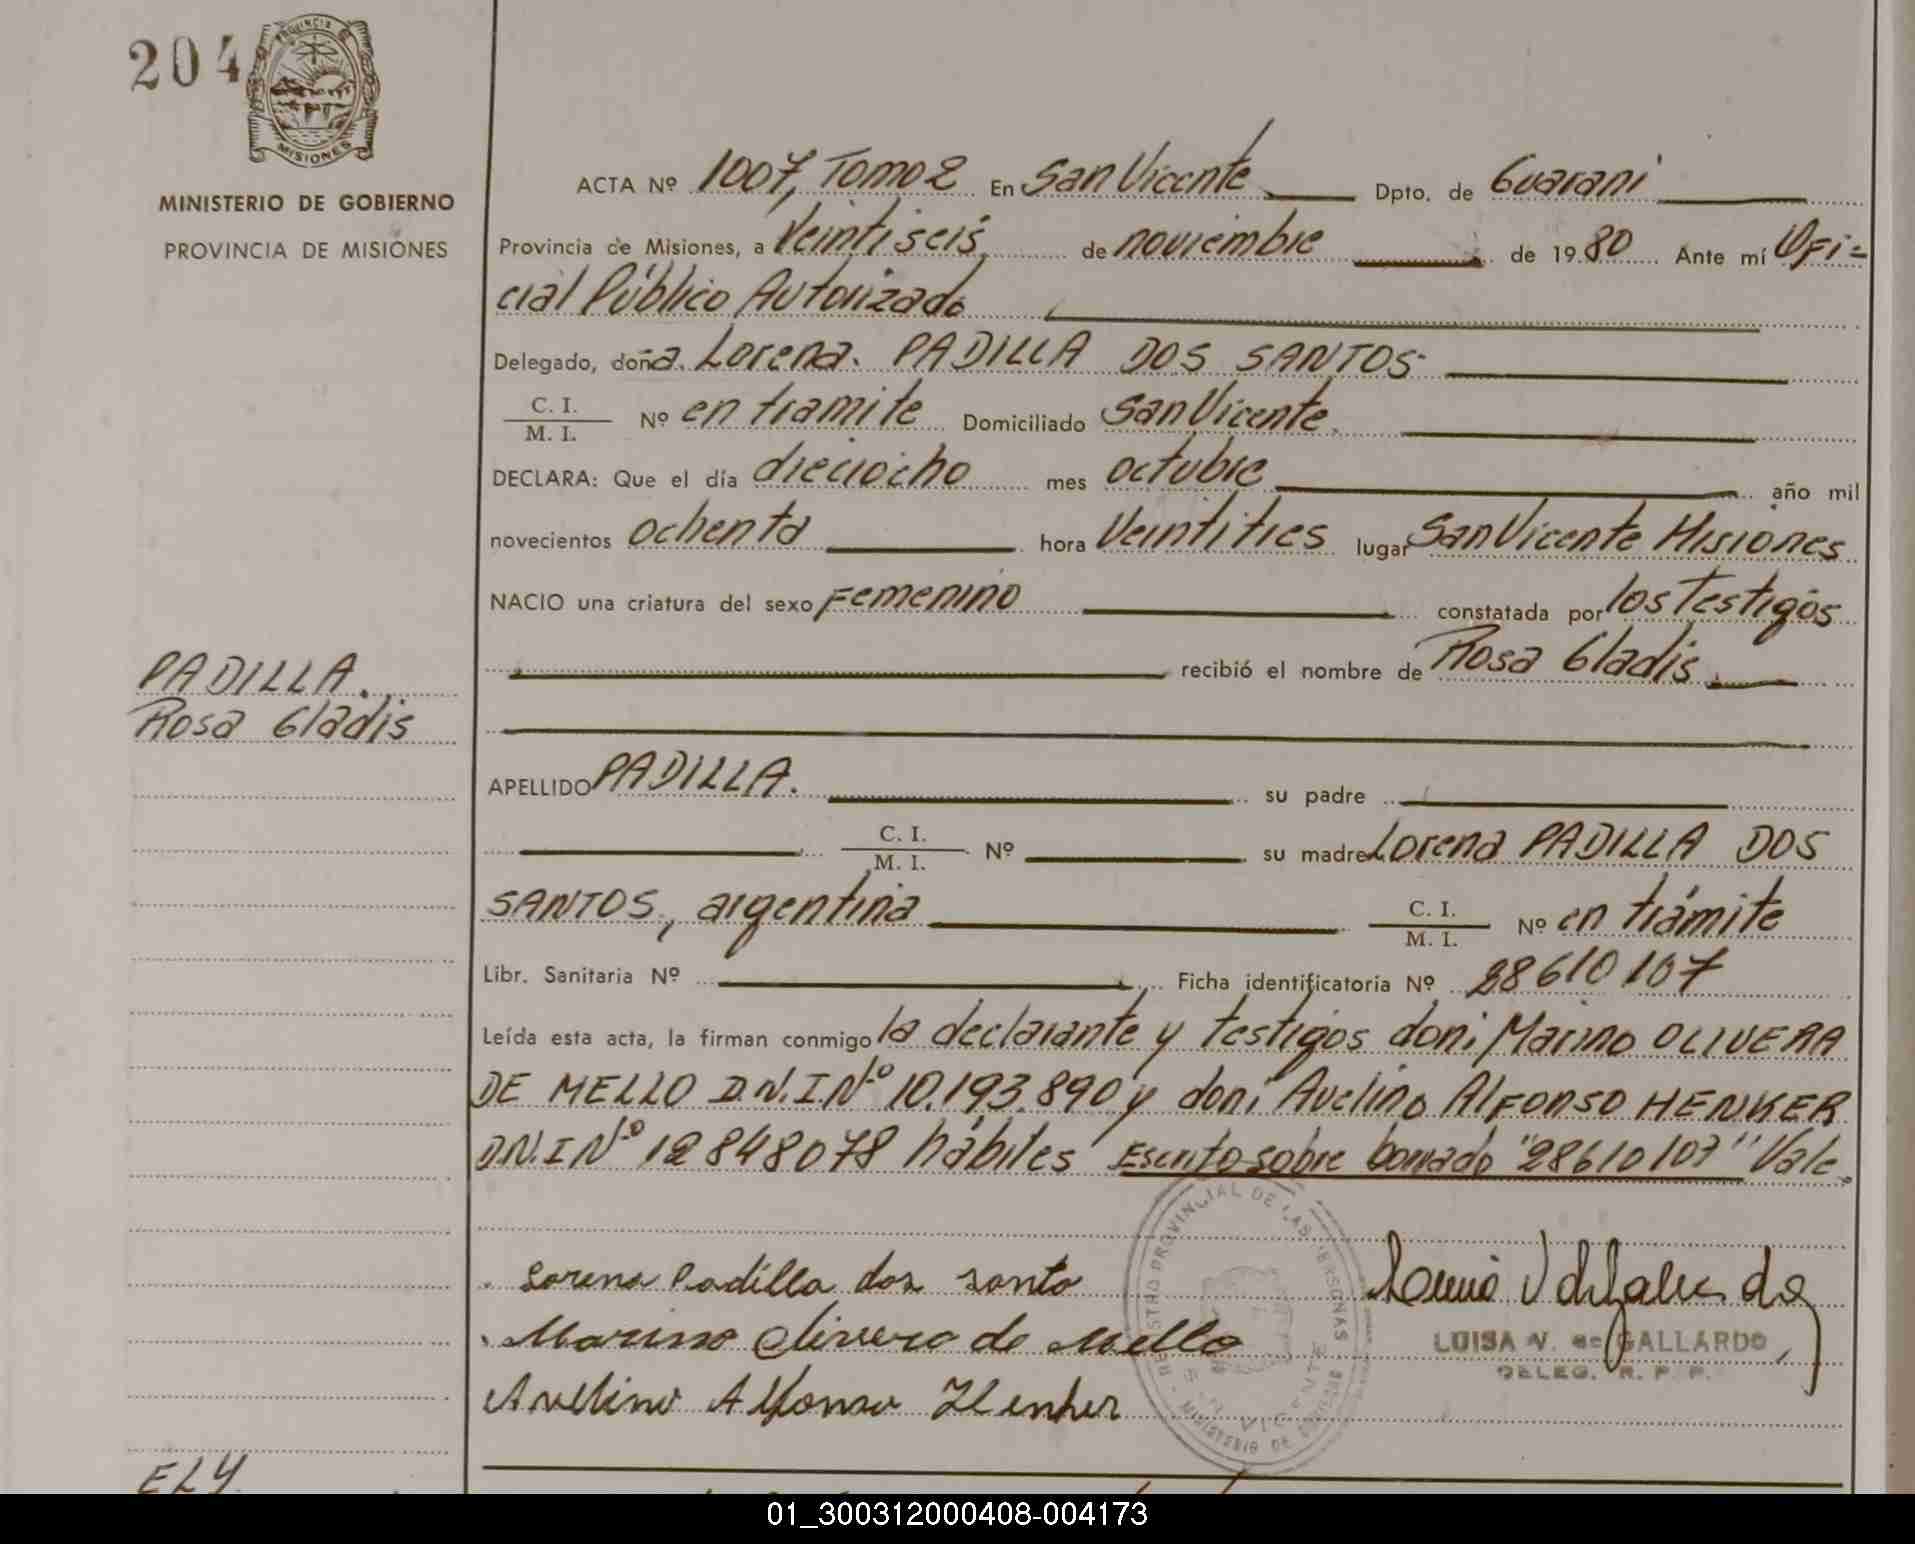 204
PROVINCIA
MISIONES
MINISTERIO DE GOBIERNO
PROVINCIA DE MISIONES
ACTA Nº 1007, Tomo 2 En San Vicente Dpto. de Guarani
Provincia de Misiones, a Veintiseis de noviembre de 1980 Ante mí Ofi=
cial Público Autorizado
Delegado, doña. Lorena. PADILLA DOS SANTOS-
C. I.
M. I. Nº en tramite Domiciliado San Vicente.
DECLARA: Que el día dieciocho mes octubre año mil
novecientos ochenta hora Veintitres lugar San Vicente Misiones
NACIO una criatura del sexo Femenino constatada por los Testigos
recibió el nombre de Rosa Gladis
PADILLA.
Rosa Gladis
APELLIDO PADILLA. su padre
C. I.
M. I. Nº su madre Lorena PADILLA DOS
SANTOS, argentina C. I.
M. I. Nº en trámite
Libr. Sanitaria Nº Ficha identificatoria Nº 28610107
Leída esta acta, la firman conmigo la declarante y testigos don: Marino OLIVERA
DE MELLO D.N.I.Nº 10.193.890 y don: Avelino Alfonso HENKER
D.N.I Nº 12848078 hábiles Escrito sobre borrado "28610107" Vale.
Lorena Padilla dos santo
Marino Olivera de Mello
Avelino Alfonso Henker
REGISTRO PROVINCIAL DE LAS PERSONAS
MINISTERIO DE GOBIERNO
VICENTE
LUISA V. de GALLARDO
DELEG. R. P. P.
ELY
01_300312000408-004173